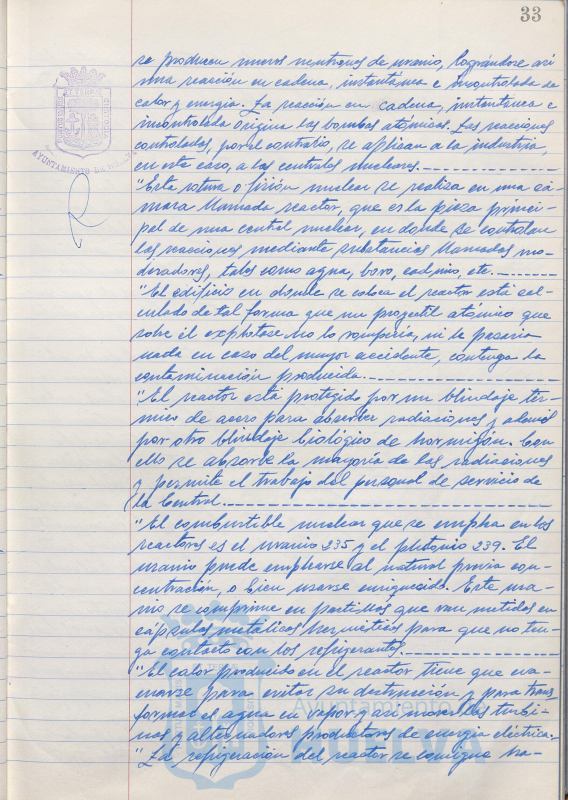 33
se producen nuevos neutrones de uranio, lográndose así
una reacción en cadena, instantánea e incontrolada de
calor y energía. La reacción en cadena, instantánea e
incontrolada origina las bombas atómicas. Las reacciones
controladas, por el contrario, se aplican a la industria,
en este caso, a las centrales nucleares.
"Esta rotura o fisión nuclear se realiza en una cá-
mara llamada reactor, que es la pieza princi-
pal de una central nuclear, en donde se controlan
las reacciones mediante substancias llamadas mo-
deradores, tales como agua, boro, cadmio, etc.
"El edificio en donde se coloca el reactor está cal-
culado de tal forma que un proyectil atómico que
sobre él explotase no lo rompería, ni le pasaría
nada en caso del mayor accidente, contenga la
contaminación producida.
"El reactor está protegido por un blindaje tér-
mico de acero para absorber radiaciones y además
por otro blindaje biológico de hormigón. Con
ello se absorbe la mayoría de las radiaciones
y permite el trabajo del personal de servicio de
la Central.
"El combustible nuclear que se emplea en los
reactores es el uranio 235 y el plutonio 239. El
uranio puede emplearse al natural previa con-
centración, o bien usarse enriquecido. Este ura-
nio se comprime en pastillas que van metidas en
cápsulas metálicas herméticas para que no ten-
ga contacto con los refrigerantes.
"El calor producido en el reactor tiene que eva-
cuarse para evitar su destrucción y para trans
formar el agua en vapor y así mover las turbi-
nas y alternadores productores de energía eléctrica.
"La refrigeración del reactor se consigue ha-
AYUNTAMIENTO DE
Ayuntamiento de
HUELVA